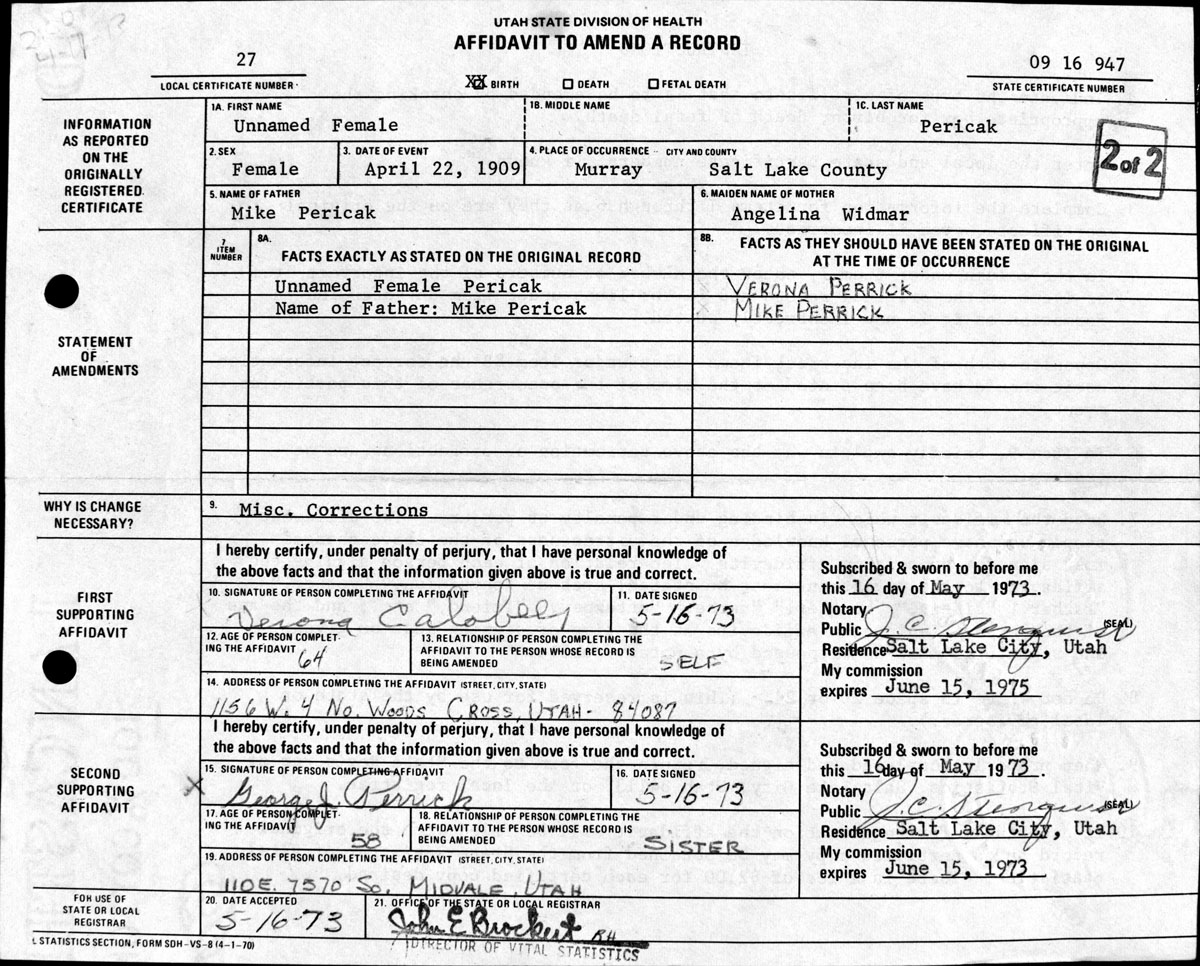 UTAH STATE DIVISION OF HEALTH
AFFIDAVIT TO AMEND A RECORD
27
LOCAL CERTIFICATE NUMBER
XX BIRTH DEATH FETAL DEATH
09 16 947
STATE CERTIFICATE NUMBER
INFORMATION AS REPORTED ON THE ORIGINALLY REGISTERED CERTIFICATE
1A. FIRST NAME 1B. MIDDLE NAME 1C. LAST NAME
Unnamed Female Pericak
2 of 2
2. SEX 3. DATE OF EVENT 4. PLACE OF OCCURRENCE - CITY AND COUNTY
Female April 22, 1909 Murray Salt Lake County
5. NAME OF FATHER 6. MAIDEN NAME OF MOTHER
Mike Pericak Angelina Widmar
STATEMENT OF AMENDMENTS
7 ITEM NUMBER
8A. FACTS EXACTLY AS STATED ON THE ORIGINAL RECORD
8B. FACTS AS THEY SHOULD HAVE BEEN STATED ON THE ORIGINAL
AT THE TIME OF OCCURRENCE
Unnamed Female Pericak X VERONA PERRICK
Name of Father: Mike Pericak X MIKE PERRICK
WHY IS CHANGE NECESSARY?
9. Misc. Corrections
FIRST SUPPORTING AFFIDAVIT
I hereby certify, under penalty of perjury, that I have personal knowledge of
the above facts and that the information given above is true and correct.
10. SIGNATURE OF PERSON COMPLETING THE AFFIDAVIT 11. DATE SIGNED
Verona 5-16-73
12. AGE OF PERSON COMPLETING THE AFFIDAVIT
64
13. RELATIONSHIP OF PERSON COMPLETING THE
AFFIDAVIT TO THE PERSON WHOSE RECORD IS
BEING AMENDED SELF
14. ADDRESS OF PERSON COMPLETING THE AFFIDAVIT (STREET, CITY, STATE)
1156 W. 4 NO. WOODS CROSS, UTAH - 84087
Subscribed & sworn to before me
this 16 day of May 1973.
Notary
Public J. C. (SEAL)
Residence Salt Lake City, Utah
My commission
expires June 15, 1975
SECOND SUPPORTING AFFIDAVIT
I hereby certify, under penalty of perjury, that I have personal knowledge of
the above facts and that the information given above is true and correct.
15. SIGNATURE OF PERSON COMPLETING AFFIDAVIT 16. DATE SIGNED
X George J. Perrick 5-16-73
17. AGE OF PERSON COMPLETING THE AFFIDAVIT
58
18. RELATIONSHIP OF PERSON COMPLETING THE
AFFIDAVIT TO THE PERSON WHOSE RECORD IS
BEING AMENDED SISTER
19. ADDRESS OF PERSON COMPLETING THE AFFIDAVIT (STREET, CITY, STATE)
110 E. 7570 SO, MIDVALE, UTAH
Subscribed & sworn to before me
this 16 day of May 1973.
Notary
Public J. C. (SEAL)
Residence Salt Lake City, Utah
My commission
expires June 15, 1973
FOR USE OF STATE OR LOCAL REGISTRAR
20. DATE ACCEPTED 21. OFFICE OF THE STATE OR LOCAL REGISTRAR
5-16-73 John E Brockert RH
DIRECTOR OF VITAL STATISTICS
STATISTICS SECTION, FORM SDH-VS-8 (4-1-70)